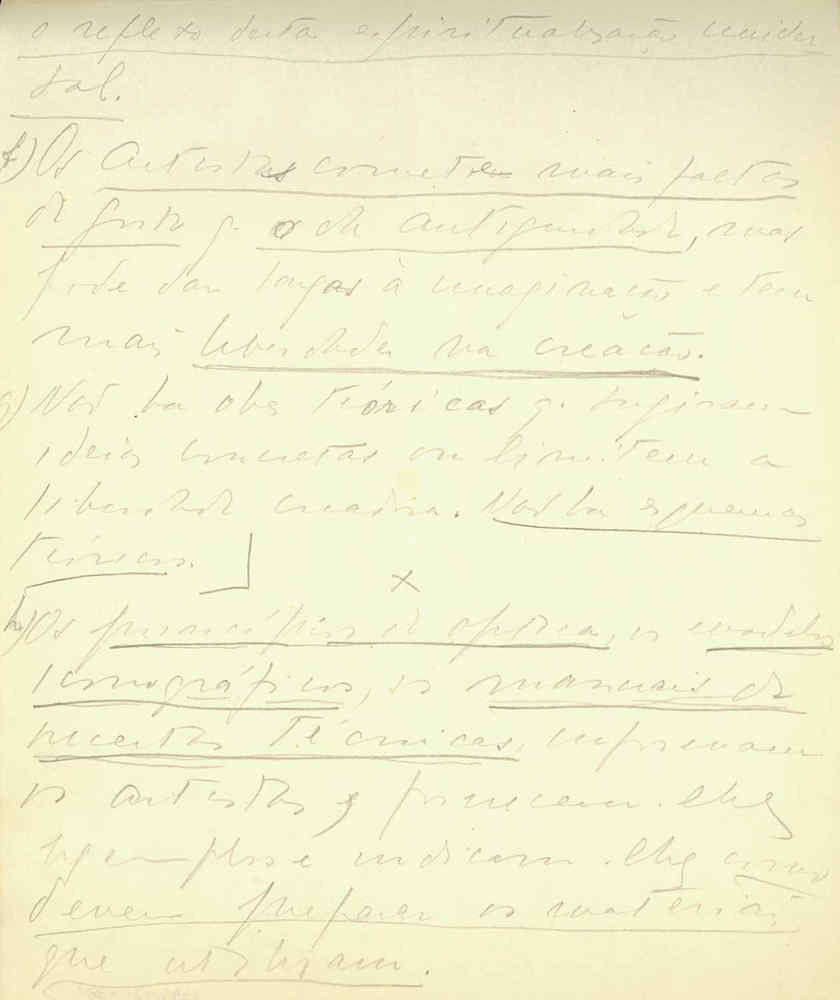 o reflexo desta espiritualização univer
sal.
f) Os artistas cometem mais faltas
de gosto q. os da antiguidade, mas
pode dar largas à imaginação e tem
mais liberdade na creação.
g) Não ha obas teóricas q. sugiram
ideias concretas ou limitem a
liberdade creadora. Não ha esquemas
teóricos.
x
h) Os princípios de óptica, os modelos
iconográficos, os manuais de
receitas técnicas, informam
os artistas e fornecem-lhes
exemplos e indicam-lhes como
devem preparar os materiais
que utilizam.